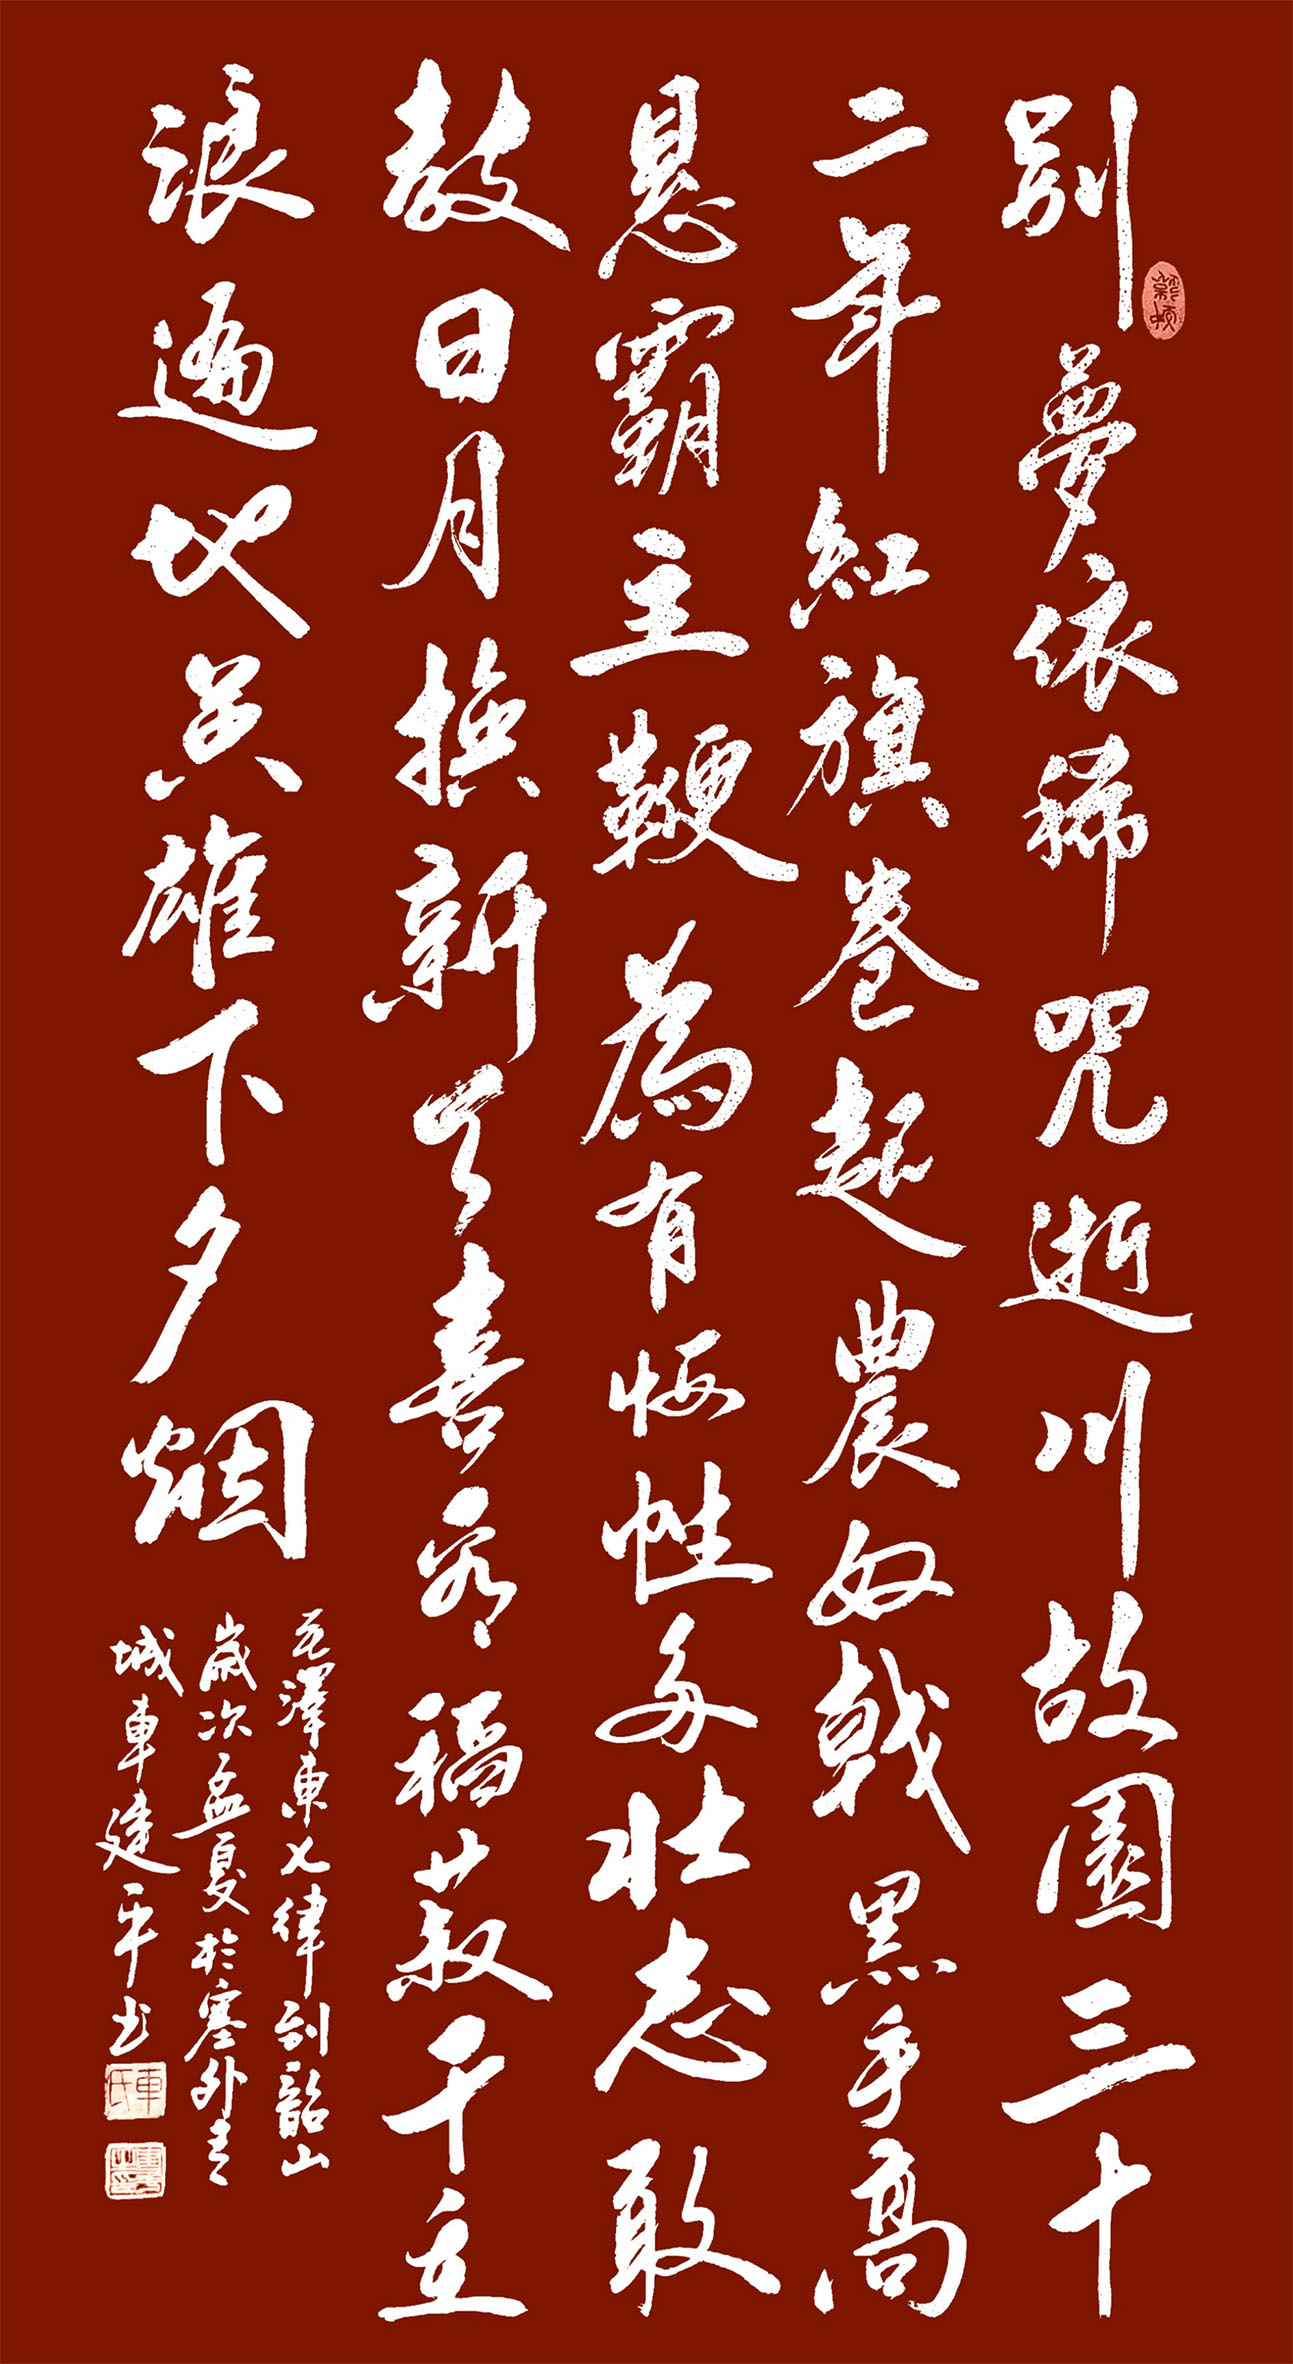 别夢依稀咒逝川故園三十
二年紅旗卷起農奴戟黑手高
悬霸主鞭為有牺牲多壯志敢
教日月換新天喜看稻菽千重
浪遍地英雄下夕烟
毛澤東七律到韶山
歲次孟夏於塞外青
城車建平书
車氏